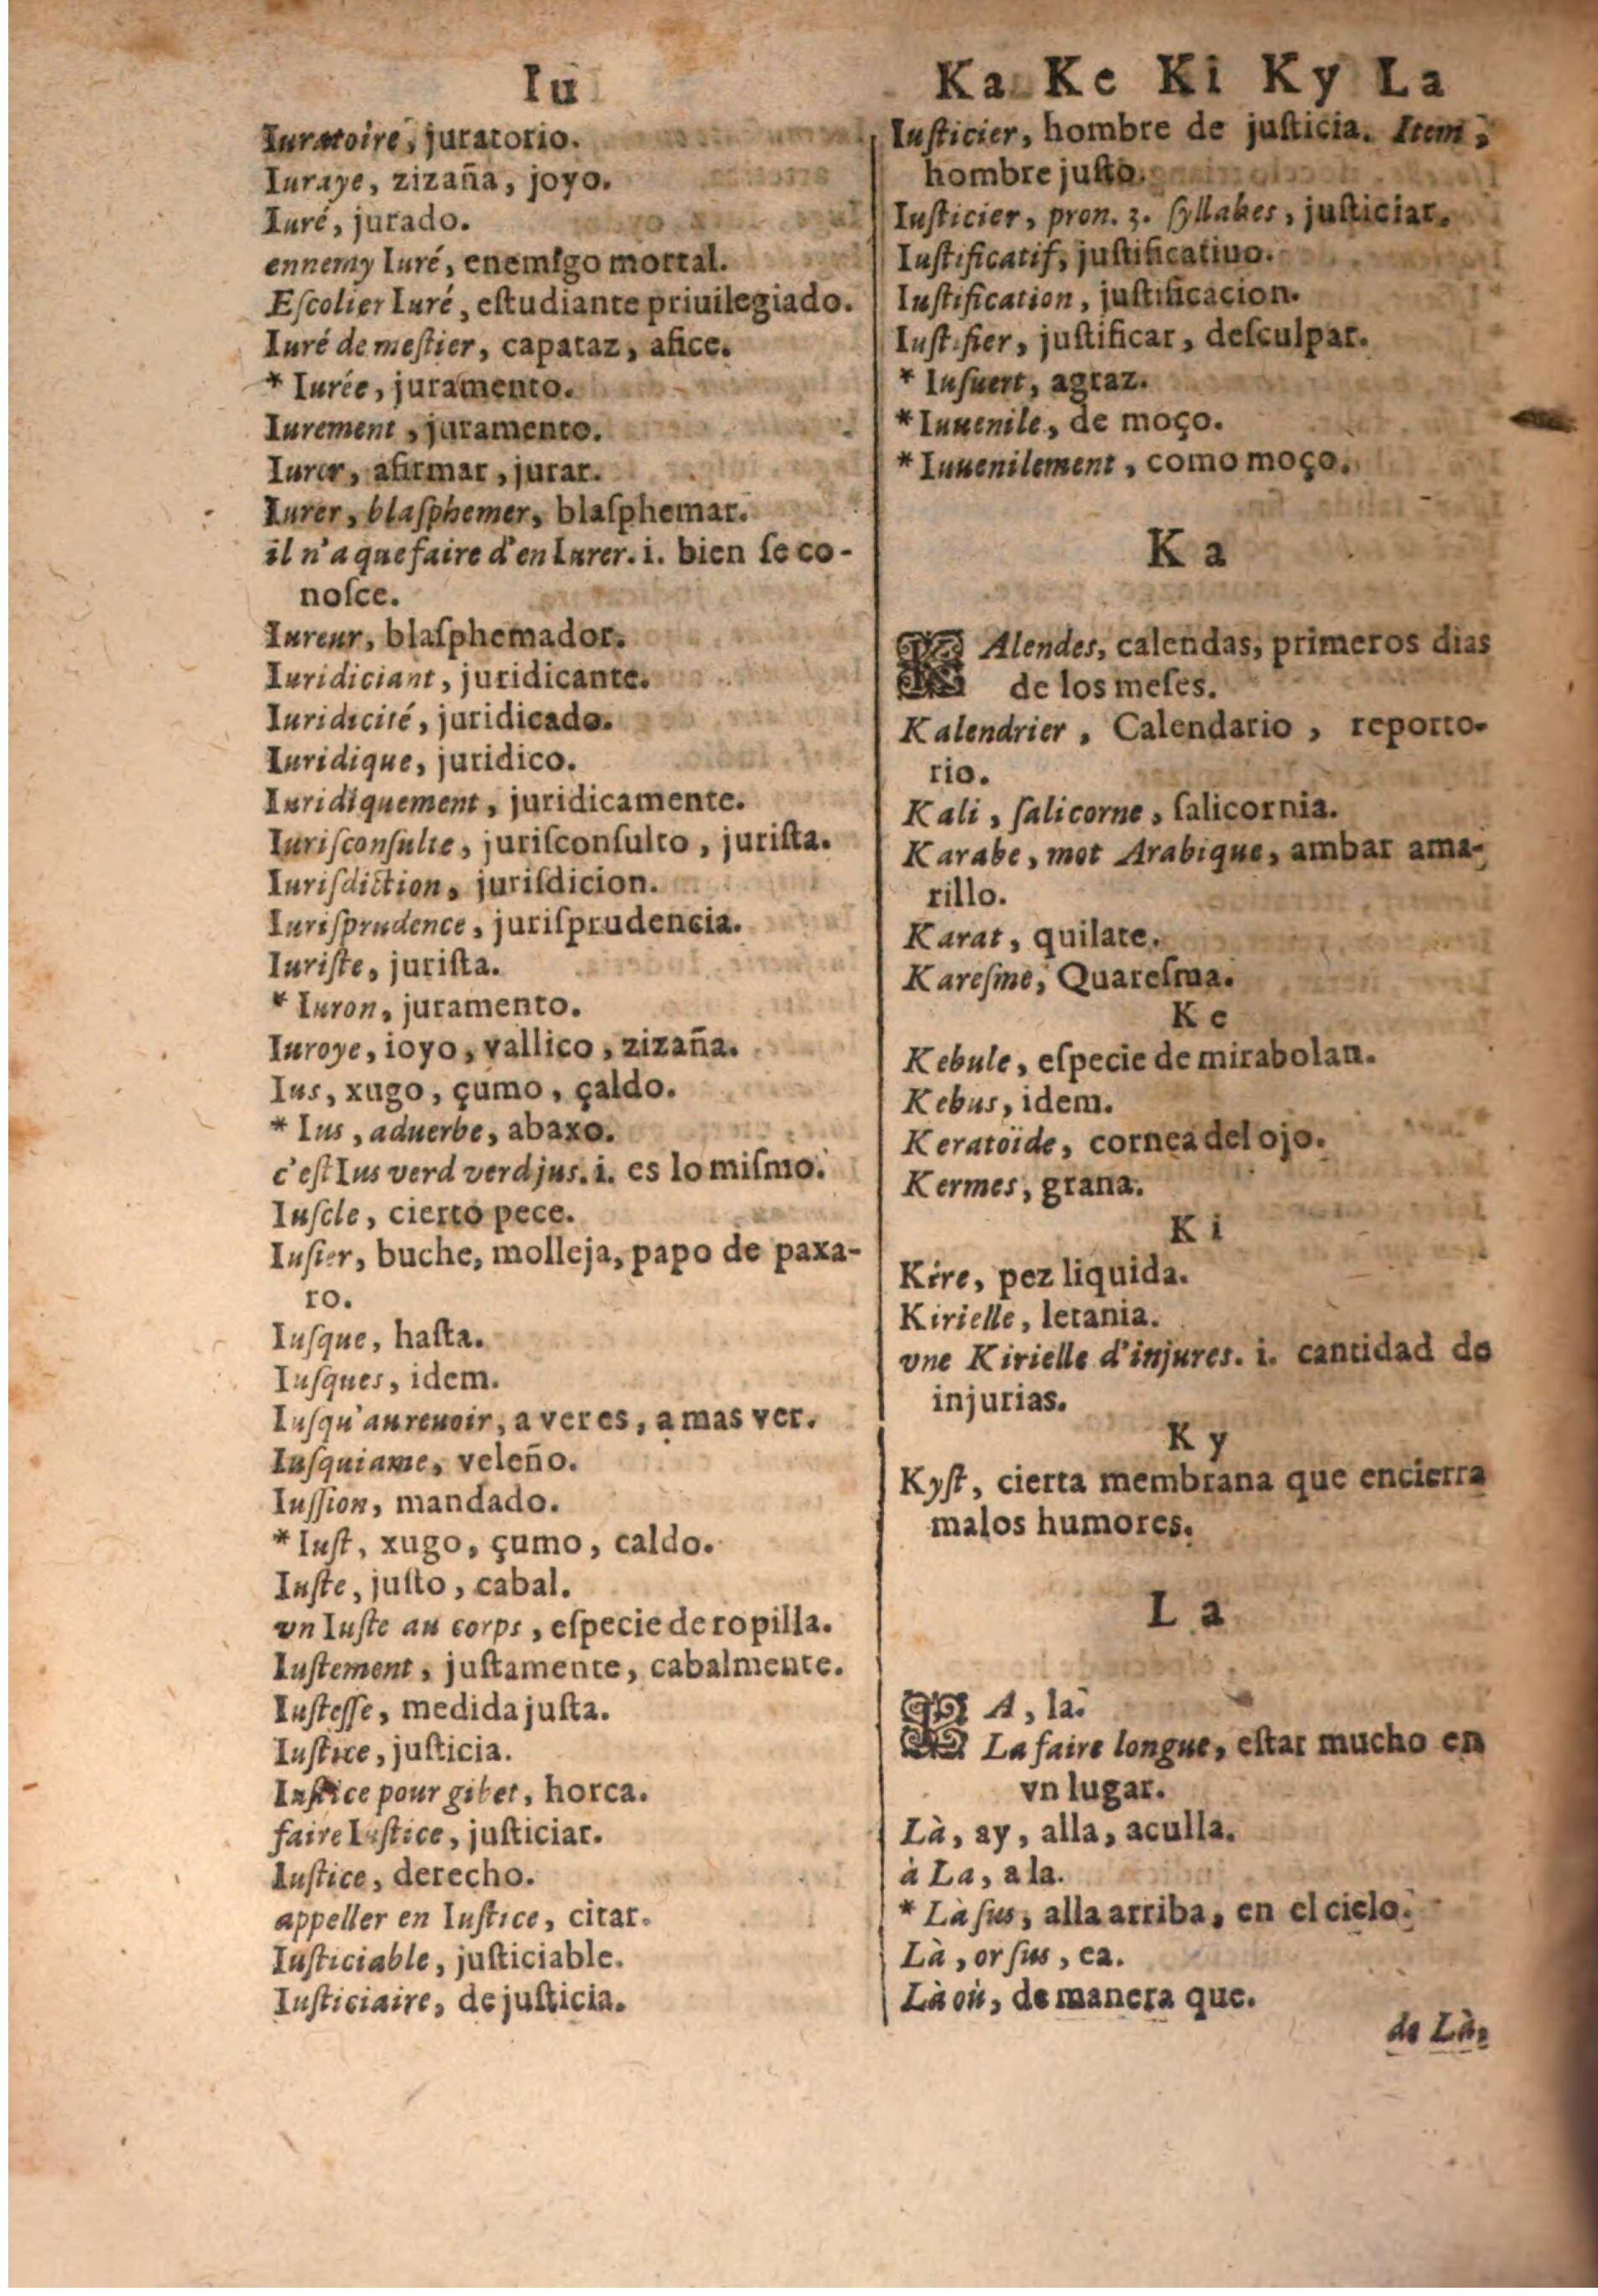 Iu
Iuratoire, juratorio.
Iuraye, zizaña, joyo.
Iuré, jurado.
ennemy Iuré, enemigo mortal.
Eſcolier Iuré, eſtudiante priuilegiado.
Iuré de meſtier, capataz, afice.
* Iurée, juramento.
Iurement, juramento.
Iurer, afirmar, jurar.
Iurer, blaſphemer, blaſphemar.
il n'a que faire d'en Iurer. i. bien ſe co-
noſce.
Iureur, blaſphemador.
Iuridiciant, juridicante.
Iuridicité, juridicado.
Iuridique, juridico.
Iuridiquement, juridicamente.
Iuriſconſulte, juriſconſulto, juriſta.
Iuriſdiction, juriſdicion.
Iuriſprudence, juriſprudencia.
Iuriſte, juriſta.
* Iuron, juramento.
Iuroye, ioyo, vallico, zizaña.
Ius, xugo, çumo, çaldo.
* Ius, aduerbe, abaxo.
c'eſt Ius verd verdjus. i. es lo miſmo.
Iuſcle, cierto pece.
Iuſier, buche, molleja, papo de paxa-
ro.
Iuſque, haſta.
Iuſques, idem.
Iuſqu'au reuoir, a veres, a mas ver.
Iuſquiame, veleño.
Iuſſion, mandado.
* Iuſt, xugo, çumo, caldo.
Iuſte, juſto, cabal.
vn Iuſte au corps, eſpecie de ropilla.
Iuſtement, juſtamente, cabalmente.
Iuſteſſe, medida juſta.
Iuſtice, juſticia.
Iuſtice pour gibet, horca.
faire Iuſtice, juſticiar.
Iuſtice, derecho.
appeller en Iuſtice, citar.
Iuſticiable, juſticiable.
Iuſticiaire, de juſticia.
Ka Ke Ki Ky La
Iuſticier, hombre de juſticia. Item,
hombre juſto.
Iuſticier, pron. 3. ſyllabes, juſticiar.
Iuſtificatif, juſtificatiuo.
Iuſtification, juſtificacion.
Iuſtifier, juſtificar, deſculpar.
* Iuſuert, agraz.
* Iuuenile, de moço.
* Iuuenilement, como moço.
Ka
KAlendes, calendas, primeros dias
de los meſes.
Kalendrier, Calendario, reporto-
rio.
Kali, ſalicorne, ſalicornia.
Karabe, mot Arabique, ambar ama-
rillo.
Karat, quilate.
Kareſme, Quareſma.
Ke
Kebule, eſpecie de mirabolan.
Kebus, idem.
Keratoïde, cornea del ojo.
Kermes, grana.
Ki
Kire, pez liquida.
Kirielle, letania.
vne Kirielle d'injures. i. cantidad de
injurias.
Ky
Kyſt, cierta membrana que encierra
malos humores.
La
LA, la.
La faire longue, eſtar mucho en
vn lugar.
Là, ay, alla, aculla.
à La, a la.
* Là ſus, alla arriba, en el cielo.
Là, or ſus, ea.
Là où, de manera que.
de Là,